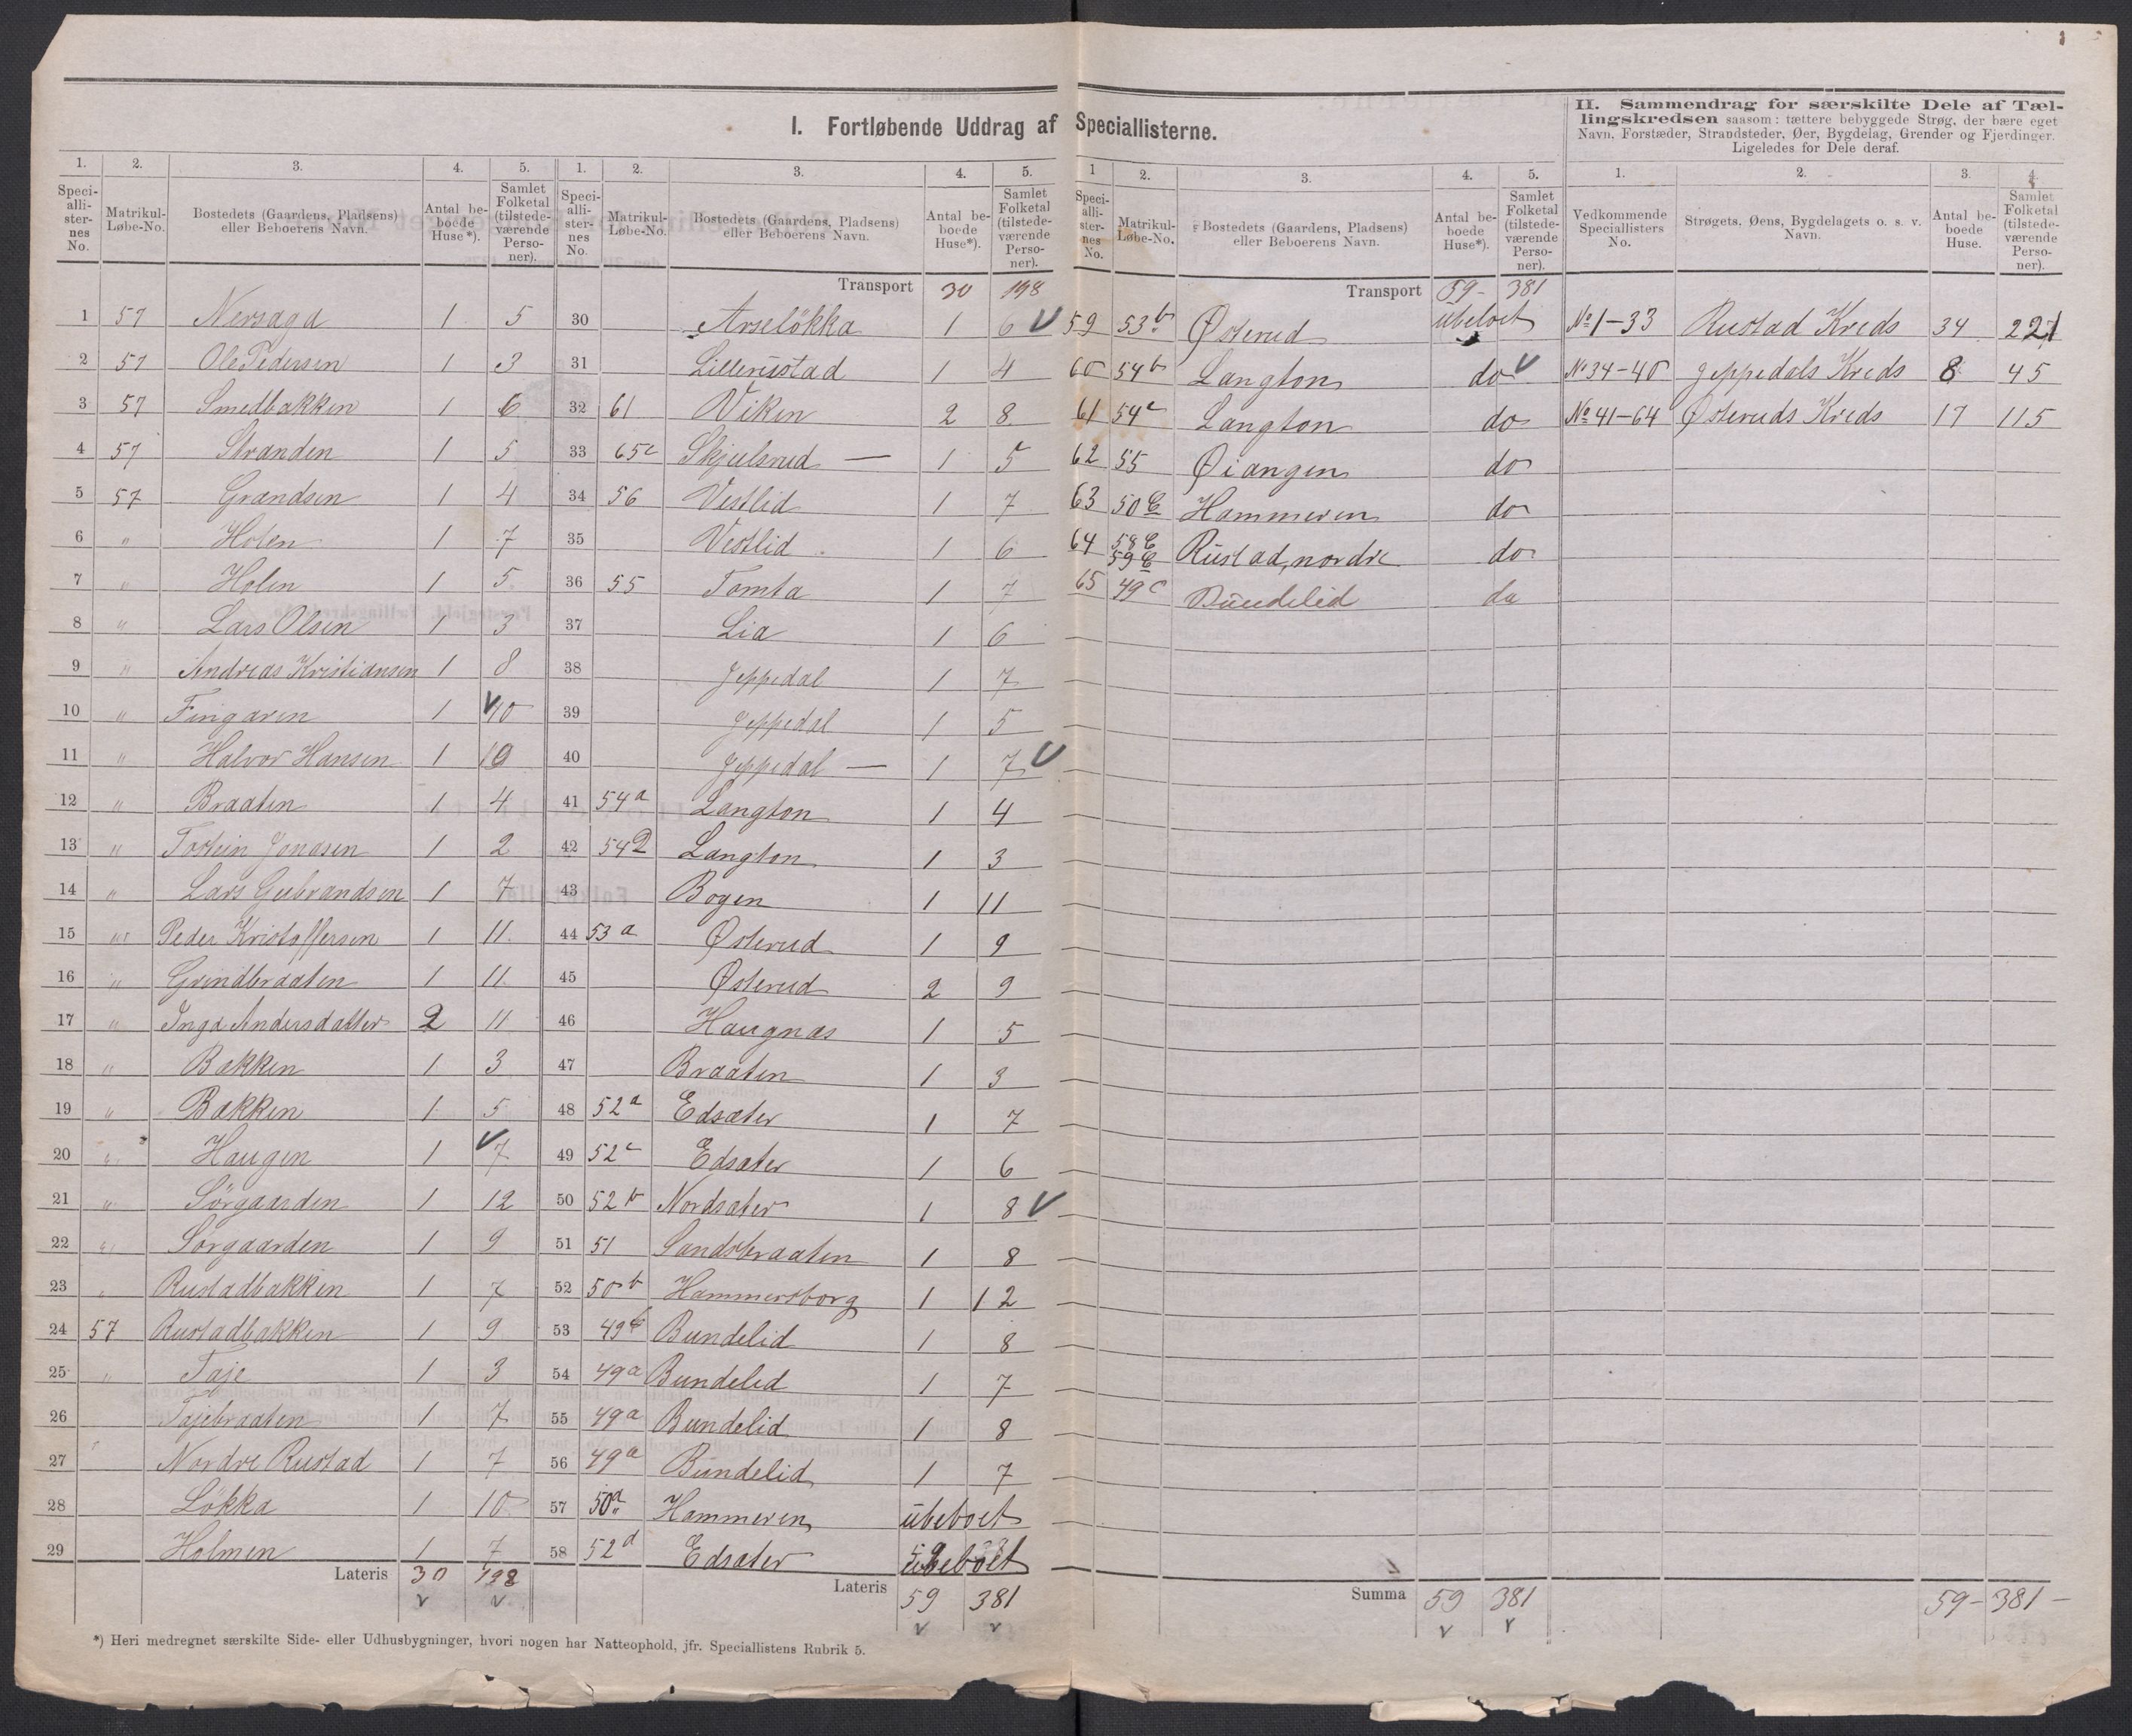 I. Fortløbende Uddrag af Speciallisterne.
II. Sammendrag for særskilte Dele af Tællingskredsen saasom: tættere bebyggede Strøg, der bære eget Navn, Forstæder, Strandsteder, Øer, Bygdelag, Grender og Fjerdinger. Ligeledes for Dele deraf.
1. 2. 3. 4. 5.
Speciallisternes No. Matrikul-Løbe-No. Bostedets (Gaardens, Pladsens) eller Beboerens Navn. Antal beboede Huse*). Samlet Folketal (tilstedeværende Personer).
1 57 Nersaga 1 5
2 57 Ole Pedersen 1 3
3 57 Smedbakken 1 6
4 57 Stranden 1 5
5 57 Grændsen 1 4
6 " Holen 1 7
7 " Holen 1 5
8 " Lars Olsen 1 3
9 " Andreas Kristiansen 1 8
10 " Fingaren 1 10
11 " Halvor Hansen 1 10
12 " Braaten 1 4
13 " Tostein Jonasen 1 2
14 " Lars Gubrandsen 1 7
15 " Peder Kristoffersen 1 11
16 " Grindbraaten 1 11
17 " Inga Andersdatter 2 11
18 " Bakken 1 3
19 " Bakken 1 5
20 " Haugen 1 7
21 " Sörgaarden 1 12
22 " Sörgaarden 1 9
23 " Rustadbakken 1 7
24 57 Rustadbakken 1 9
25 " Taje 1 3
26 Tajebraaten 1 7
27 " Nordre Rustad 1 7
28 Løkka 1 10
29 Holmen 1 7
Lateris 30 198
1. 2. 3. 4. 5.
Speciallisternes No. Matrikul-Løbe-No. Bostedets (Gaardens, Pladsens) eller Beboerens Navn. Antal beboede Huse*). Samlet Folketal (tilstedeværende Personer).
Transport 30 198
30 Arseløkka 1 6
31 Lillerustad 1 4
32 61 Viken 2 8
33 65c Skjulsrud — 1 5
34 56 Vestlid 1 7
35 Vestlid 1 6
36 55 Tomta 1 7
37 Lia 1 6
38 Jeppedal 1 7
39 Jeppedal 1 5
40 Jeppedal — 1 7
41 54a Langton 1 4
42 54D Langton 1 3
43 Bogen 1 11
44 53a Østerud 1 9
45 Østerud 2 9
46 Haugnæs 1 5
47 Braaten 1 3
48 52a Edsæter 1 7
49 52c Edsæter 1 6
50 52b Nordsæter 1 8
51 51 Sandsbraaten 1 8
52 50b Hammersborg 1 12
53 49b Bundelid 1 8
54 49a Bundelid 1 7
55 49a Bundelid 1 8
56 49a Bundelid 1 7
57 50a Hammeren ubeboet
58 52d Edsæter ubeboet
Lateris 59 381
1 2. 3. 4. 5.
Speciallisternes No. Matrikul-Løbe-No. Bostedets (Gaardens, Pladsens) eller Beboerens Navn. Antal beboede Huse*). Samlet Folketal (tilstedeværende Personer).
Transport 59- 381
59 53b Østerud ubeboet
60 54b Langton do
61 54c Langton do
62 55 Øiangen do
63 50C Hammeren do
64 58C 59C Rustad, nordre do
65 49c Bundelid do
Summa 59 381
1. 2. 3. 4.
Vedkommende Speciallisters No. Strøgets, Øens, Bygdelagets o. s. v. Navn. Antal beboede Huse. Samlet Folketal (tilstedeværende Personer).
No 1-33 Rustad Kreds 34 221
No 34-40 Jeppedals Kreds 8 45
No 41-64 Østeruds Kreds 17 115
59- 381 -
*) Heri medregnet særskilte Side- eller Udhusbygninger, hvori nogen har Natteophold, jfr. Speciallistens Rubrik 5.